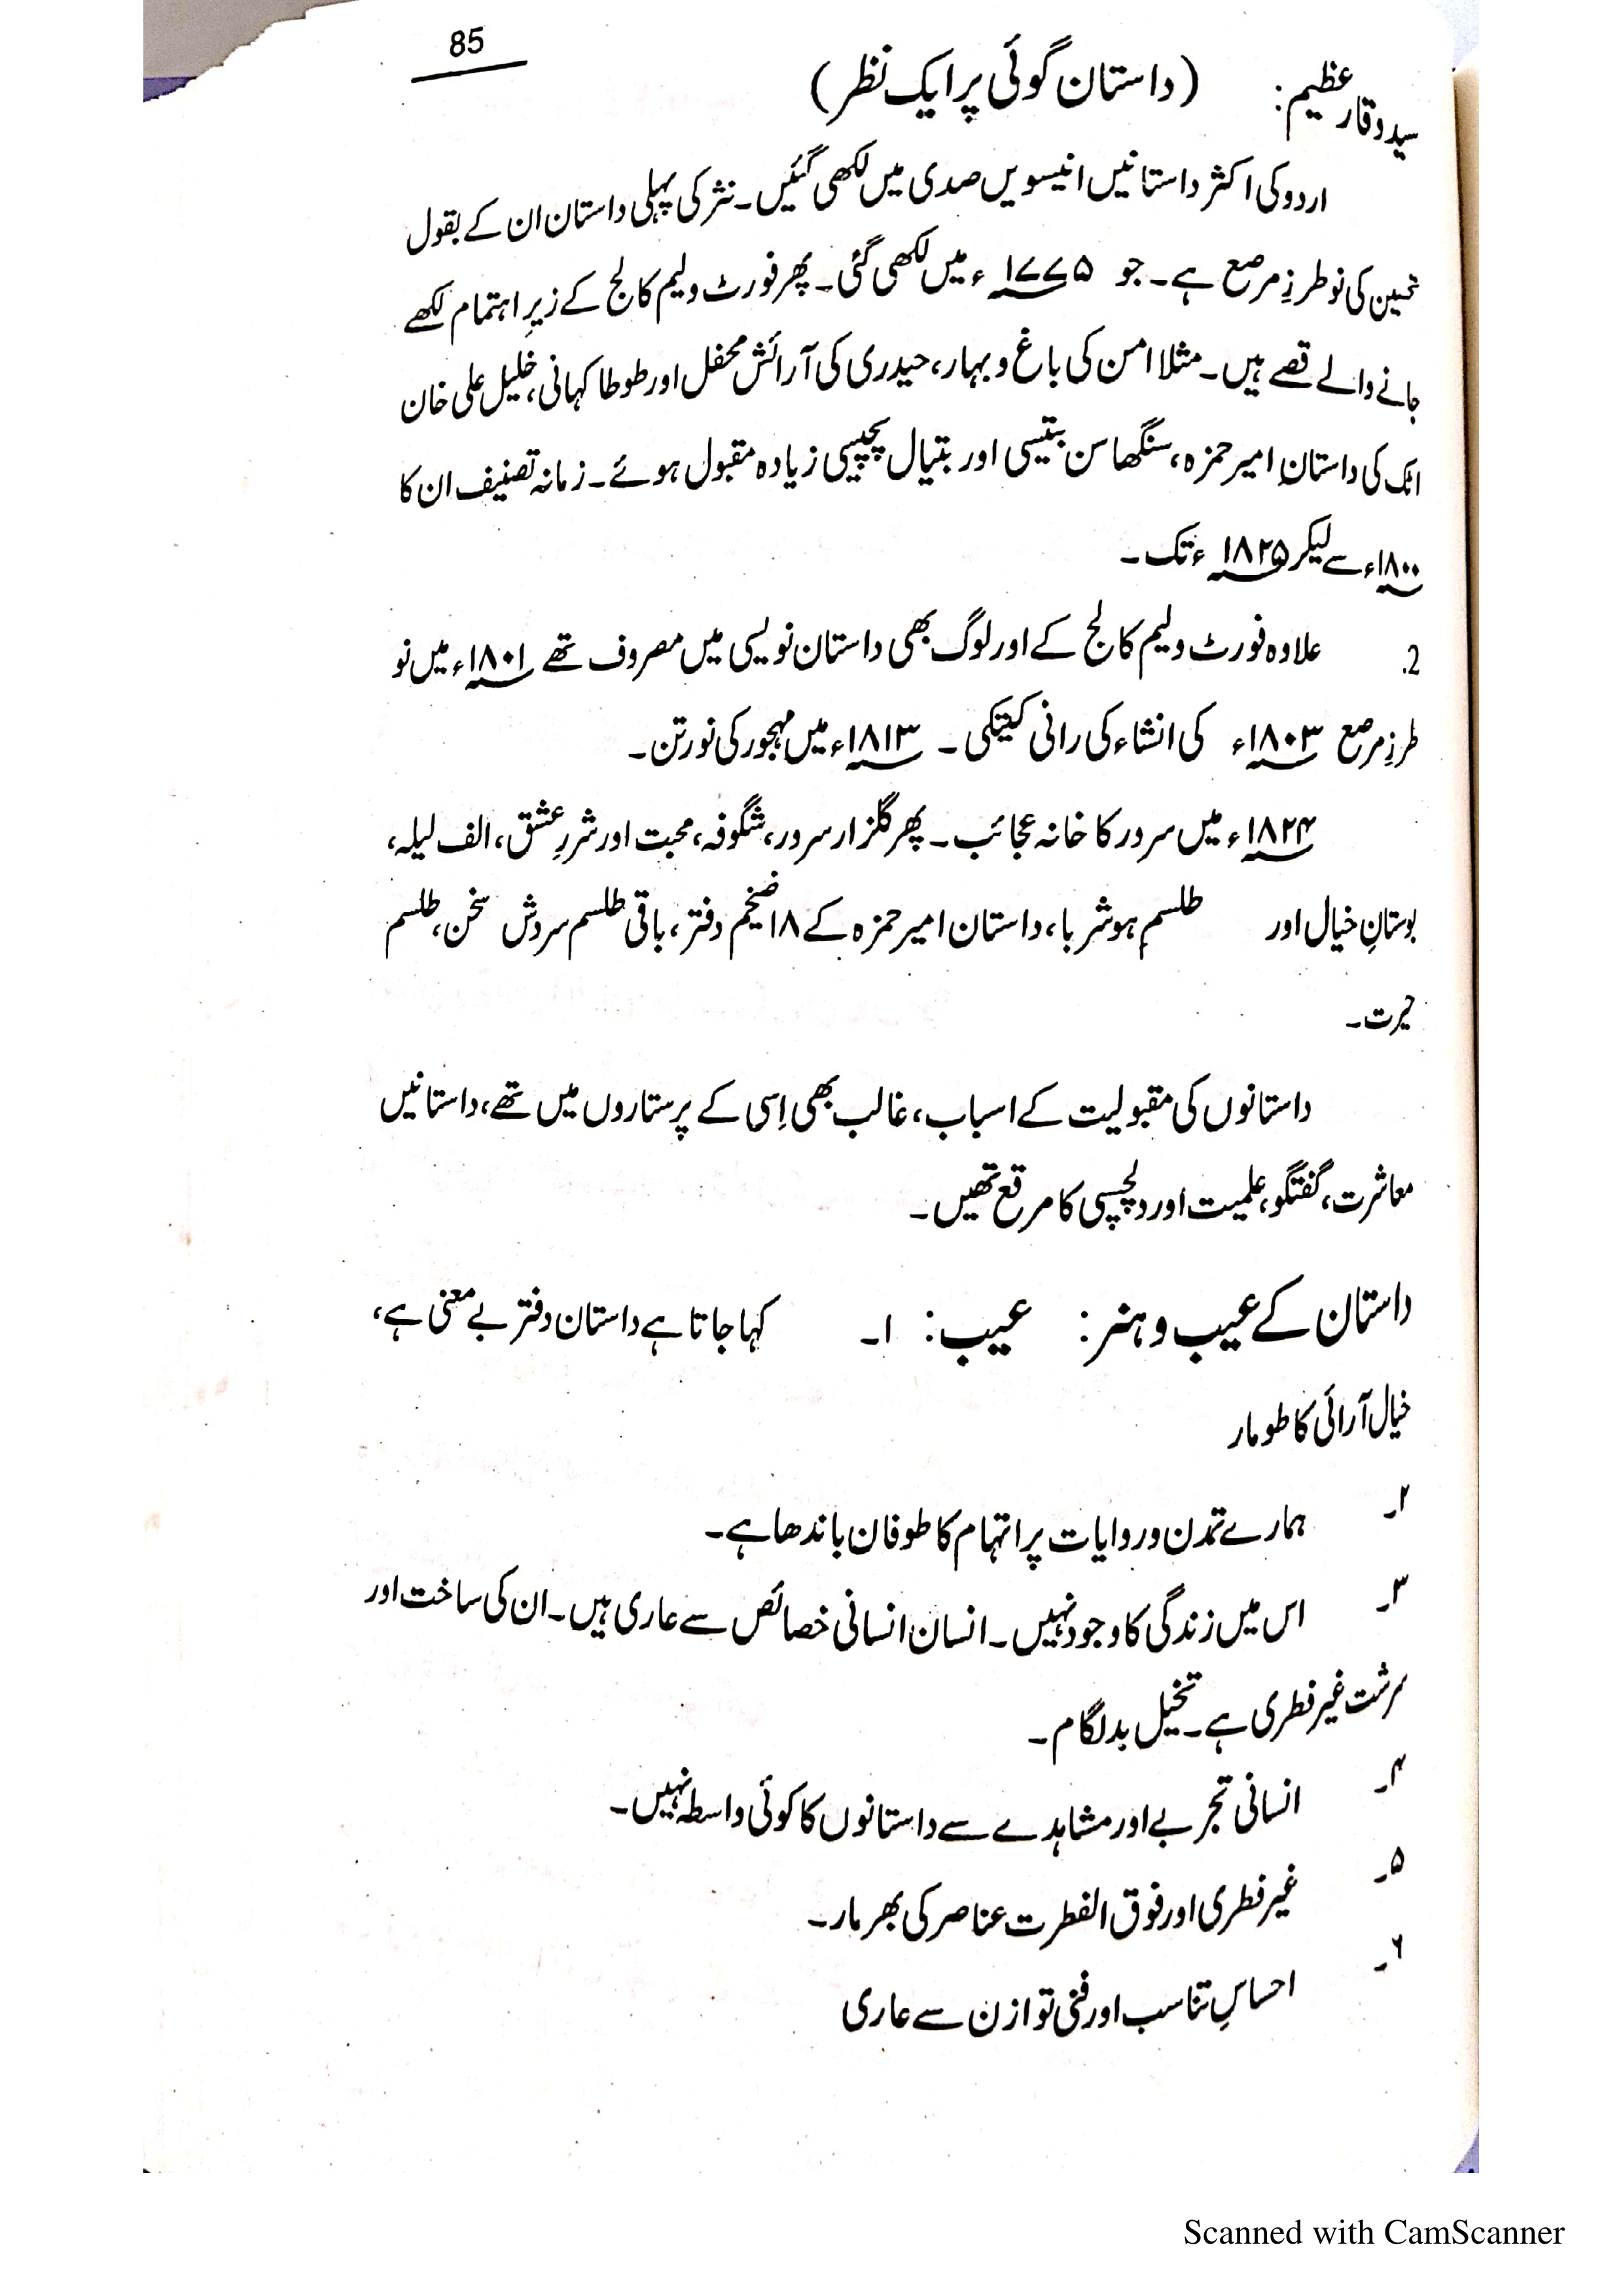 85
سید وقار عظیم: (داستان گوئی پر ایک نظر)
اردو کی اکثر داستانیں انیسویں صدی میں لکھی گئیں۔ نثر کی پہلی داستان ان کے بقول
تحسین کی نو طرزِ مرصع ہے۔ جو ۱۷۷۵ء میں لکھی گئی۔ پھر فورٹ ولیم کالج کے زیرِ اہتمام لکھے
جانے والے قصے ہیں۔ مثلا امن کی باغ و بہار، حیدری کی آرائش محفل اور طوطا کہانی، خلیل علی خان
اٹک کی داستانِ امیر حمزہ، سنگھاسن بتیسی اور بتیال پچپسی زیادہ مقبول ہوئے۔ زمانہ تصنیف ان کا
۱۸۰۰ء سے لیکر ۱۸۲۵ء تک۔
2. علاوہ فورٹ ولیم کالج کے اور لوگ بھی داستان نویسی میں مصروف تھے ۱۸۰۱ء میں نو
طرزِ مرصع ۱۸۰۳ء کی انشاء کی رانی کیتکی۔ ۱۸۱۳ء میں مہجور کی نورتن۔
۱۸۲۴ء میں سرور کا خانہ عجائب۔ پھر گلزار سرور، شگوفہ، محبت اور شررِ عشق، الف لیلہ،
بوستانِ خیال اور طلسمِ ہوشربا، داستان امیر حمزہ کے ۱۸ ضخیم دفتر، باقی طلسم سردش سخن، طلسم
حیرت۔
داستانوں کی مقبولیت کے اسباب، غالب بھی اِسی کے پرستاروں میں تھے، داستانیں
معاشرت، گفتگو، علمیت اور دلچسپی کا مرقع تھیں۔
داستان کے عیب و ہنر: عیب: ۱۔ کہا جاتا ہے داستان دفتر بے معنی ہے،
خیال آرائی کا طومار
۲۔ ہمارے تمدن و روایات پر اتہام کا طوفان باندھا ہے۔
۳۔ اس میں زندگی کا وجود نہیں۔ انسان انسانی خصائص سے عاری ہیں۔ ان کی ساخت اور
سرشت غیر فطری ہے۔ تخیل بدلگام۔
۴۔ انسانی تجربے اور مشاہدے سے داستانوں کا کوئی واسطہ نہیں۔
۵۔ غیر فطری اور فوق الفطرت عناصر کی بھر مار۔
۶۔ احساسِ تناسب اور فنی توازن سے عاری
Scanned with CamScanner